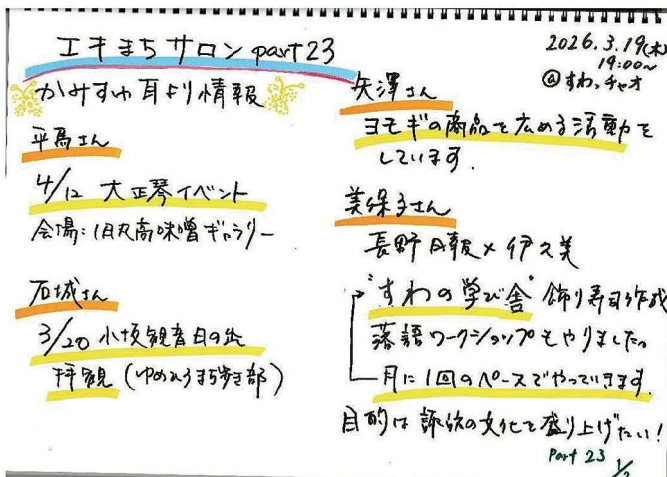 エキまちサロン part23
2026.3.19(木)
19:00~
@すわっチャオ
かみすわ 耳より情報
平馬さん
4/12 大正琴イベント
会場:旧丸高味噌ギャラリー
石城さん
3/20 小坂観音日の出
拝観 (ゆめひろまち歩き部)
矢澤さん
ヨモギの商品を広める活動を
しています.
美保子さん
長野日報×伊久美
"すわの学び舎" 飾り寿司作成
落語ワークショップもやりました。
月に1回のペースでやっています.
目的は 諏訪の文化を盛り上げたい!
Part 23 1/2